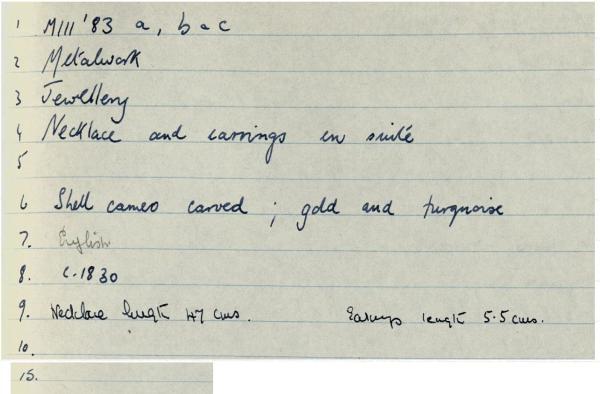 1 M111 '83 a, b & c
2 Metalwork
3 Jewellery
4 Necklace and earrings en suite
5
6 Shell cameo carved ; gold and turquoise
7. English
8. c.1830
9. Necklace length 47 cms. Earrings length 5.5 cms.
10.
15.